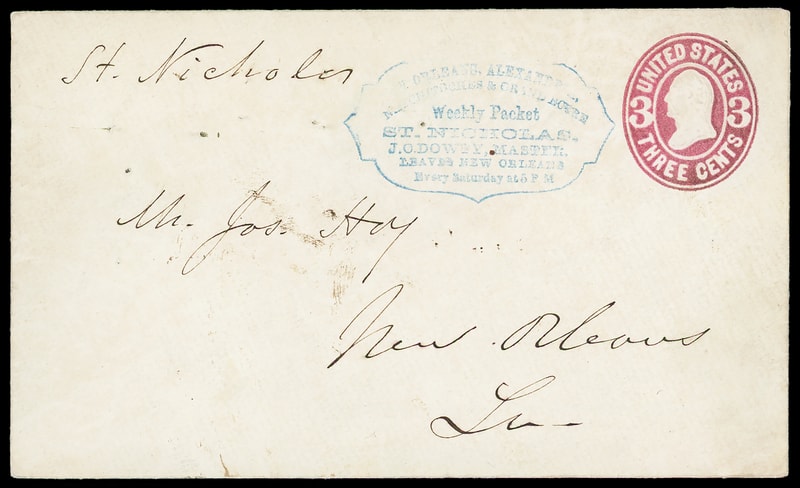 St. Nicholas
N. ORLEANS, ALEXANDRIA,
NATCHITOCHES & GRAND ECORE
Weekly Packet
ST. NICHOLAS.
J. C. DOWTY, MASTER.
LEAVES NEW ORLEANS
Every Saturday at 5 P M
UNITED STATES
3 3
THREE CENTS
Mr. Jos. Hoy
New Orleans
La